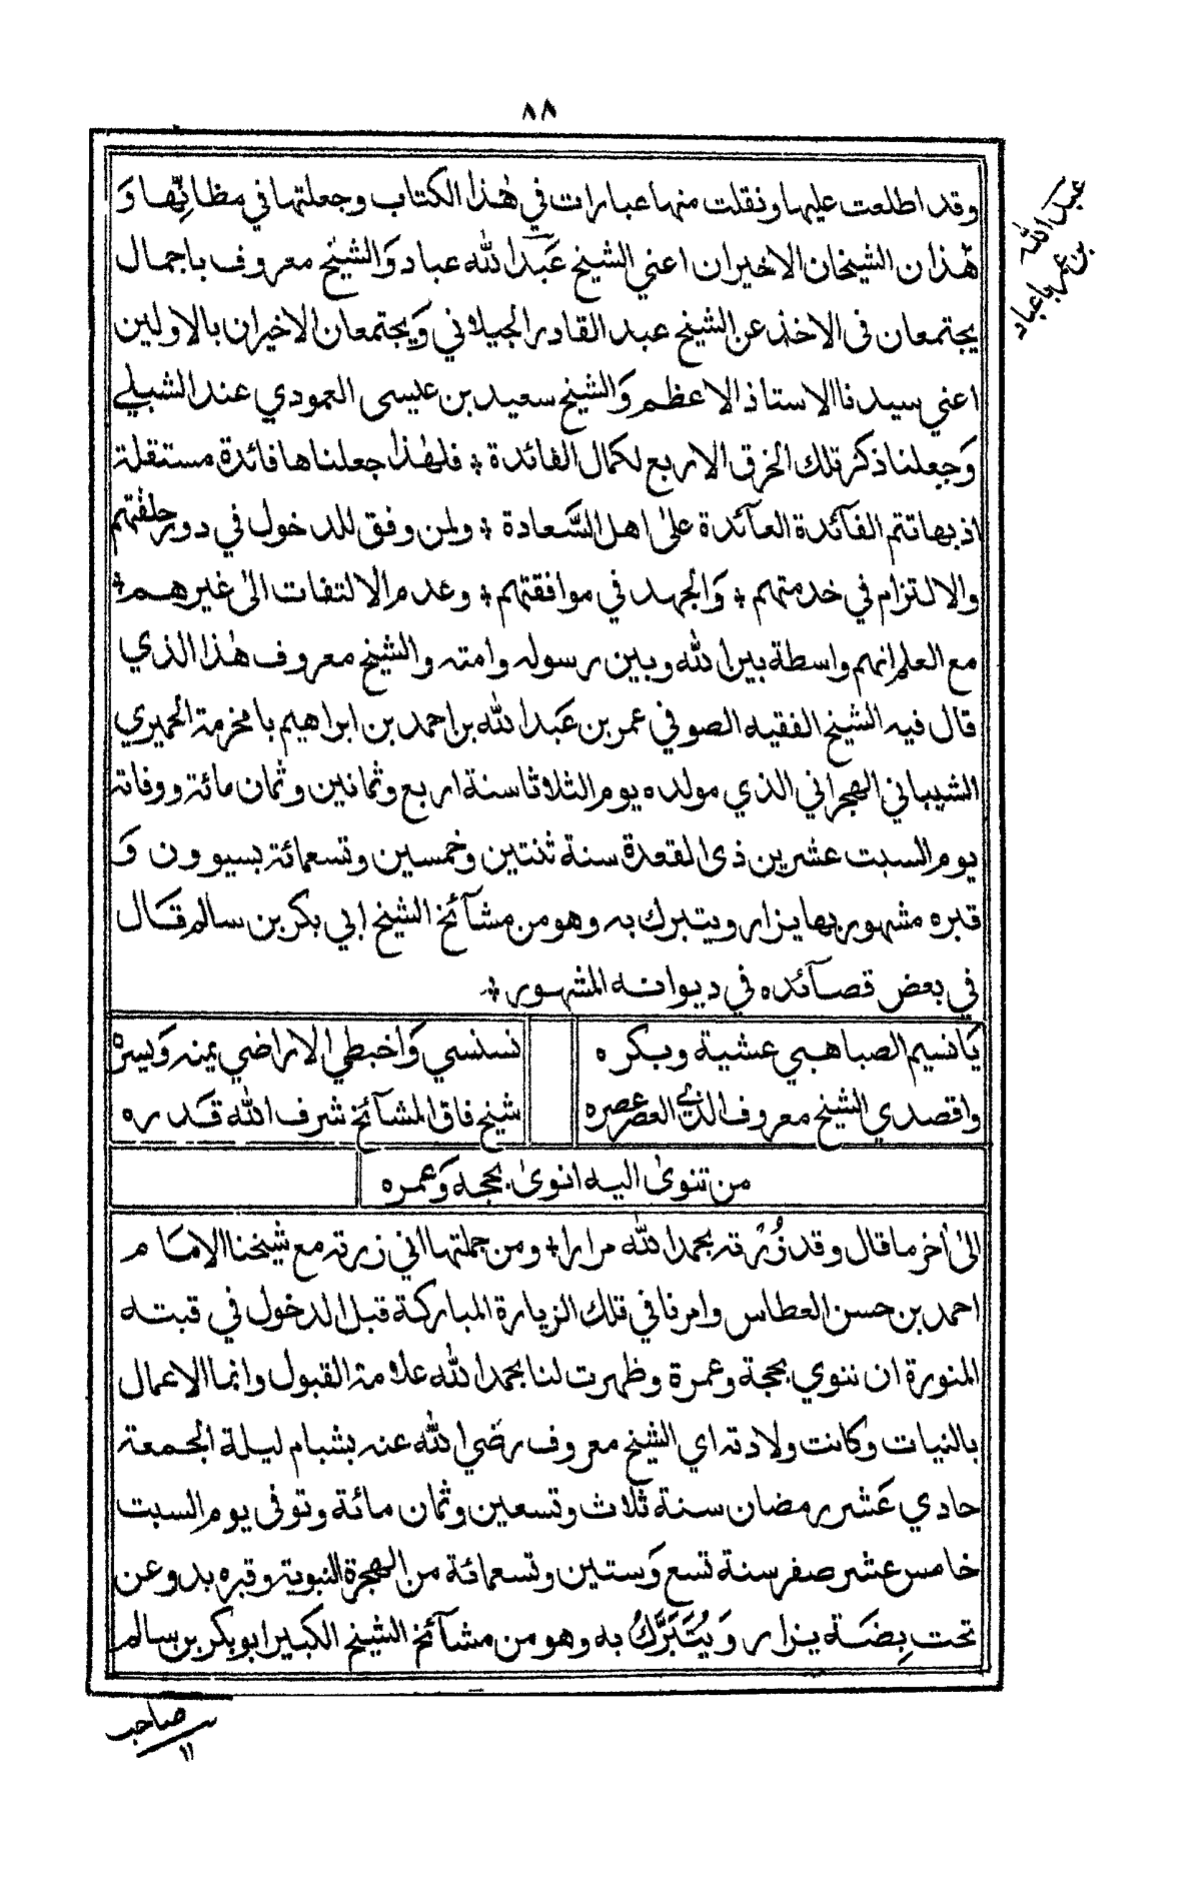 ٨٨
وقد اطلعت عليها ونقلت منها عبارات في هٰذا الكتاب وجعلتها في مظانِّها وَ
هٰذان الشيخان الاخيران اعني الشيخ عَبد الله عباد وَالشيخ معروف باجمال
يجتمعان فى الاخذ عن الشيخ عبد القادر الجيلاني وَيجتمعان الاخيران بالاولين
اعني سيدنا الاستاذ الاعظم وَالشيخ سعيد بن عيسى العمودي عند الشبيلي
وَجعلنا ذكر تلك الخرق الاربع لكمال الفائدة ؞ فلهٰذا جعلناها فائدة مستقلة
اذ بها تتم الفآئدة العآئدة علىٰ اهل السَّعادة ؞ ولمن وفق للدخول في دور حلقتهم
والالتزام في خدمتهم ؞ وَالجهد في موافقتهم ؞ وعدم الالتفات الىٰ غيرهم ؞
مع العلم انهم واسطة بين الله وبين رسوله وامته والشيخ معروف هٰذا الذي
قال فيه الشيخ الفقيه الصوفي عمر بن عَبد الله بن احمد بن ابراهيم بامخرمة الحميري
الشيباني الهجراني الذي مولده يوم الثلاثا سنة اربع وثمانين وثمان مائة ووفاته
يوم السبت عشرين ذى القعدة سنة ثنتين وخمسين وتسعمائة بسيوون وَ
قبره مشهور بها يزار ويتبرك به وهو من مشآئخ الشيخ ابي بكر بن سالم قَال
في بعض قصآئده في ديوانه المشهور ؞
يَا نسيم الصبا هبي عشية وبكره نسنسي وَاخبطي الاراضي يمنه وَيسره
واقصدي الشيخ معروف الذي العصر عصره شيخ فاق المشآئخ شرف الله قَدره
من تنوىٰ اليه انوىٰ بحجه وَعمره
الىٰ آخر ما قال وقد زُرته بحمد الله مرارا ؞ ومن جملتها اني زرته مع شيخنا الامَام
احمد بن حسن العطاس وامرنا في تلك الزيارة المباركة قبل الدخول في قبته
المنورة ان ننوي بحجة وعمرة وظهرت لنا بحمد الله علامة القبول وانما الاعمال
بالنيات وكانت ولادته اي الشيخ معروف رضي الله عنه بشبام ليلة الجمعة
حادي عَشر رمضان سنة ثلاث وتسعين وثمان مائة وتوفى يوم السبت
خامس عشر صفر سنة تسع وَستين وتسعمائة من الهجرة النبوية وقبره بدوعن
تحت بِضَة يزار وَيُتَبَرَّكُ به وهو من مشآئخ الشيخ الكبير ابو بكر بن سالم
صاحب
١١
عبد الله
بن عمر باعباد